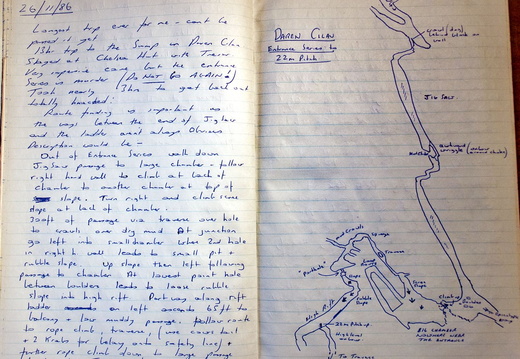 26/11/86
Longest trip ever for me - can't be
proud of it yet
13hr trip to the Sump in Daren Cilau
Stayed at Chelsea Hut with Trevor
Very impressive cave but the entrance
Series is murder (DO NOT GO AGAIN!)
Took nearly 3hrs to get back out
totally knackered.
Route finding is important as
the ways between the end of Jigsaw
and the ladder aren't always Obvious
Description would be -
Out of Entrance Series walk down
Jigsaw passage to large chamber - follow
right hand wall to climb at back of
chamber to another chamber at top of
slope. Turn right and climb some
slope at back of chamber.
300ft of passage via traverse over hole
to crawls over dry mud At junction
go left into small chamber When 2nd hole
in right h wall leads to small pit +
rubble slope. Up slope then left following
passage to chamber At lowest point hole
between boulders leads to loose rubble
slope into high rift Part way along rift
ladder on left ascends 65ft to
belong a low sandy passage. follow route
to rope climb, traverse (
+ 2 Krabs for belay onto safety line) +
further rope climb down to large passage
DAREN CILAU
Entrance Series to
22m Pitch
crawl (dry)
behind block on
wall
JIGSAW
Boulders
awkward
squiggle
"Porthole"
Crawls
Squeeze
Traverse
High Rift
Rubble Slope
22m Pitch up
High level
Climb
BIG CHAMBER
NOWHERE NEAR
THE ENTRANCE
To Traverse